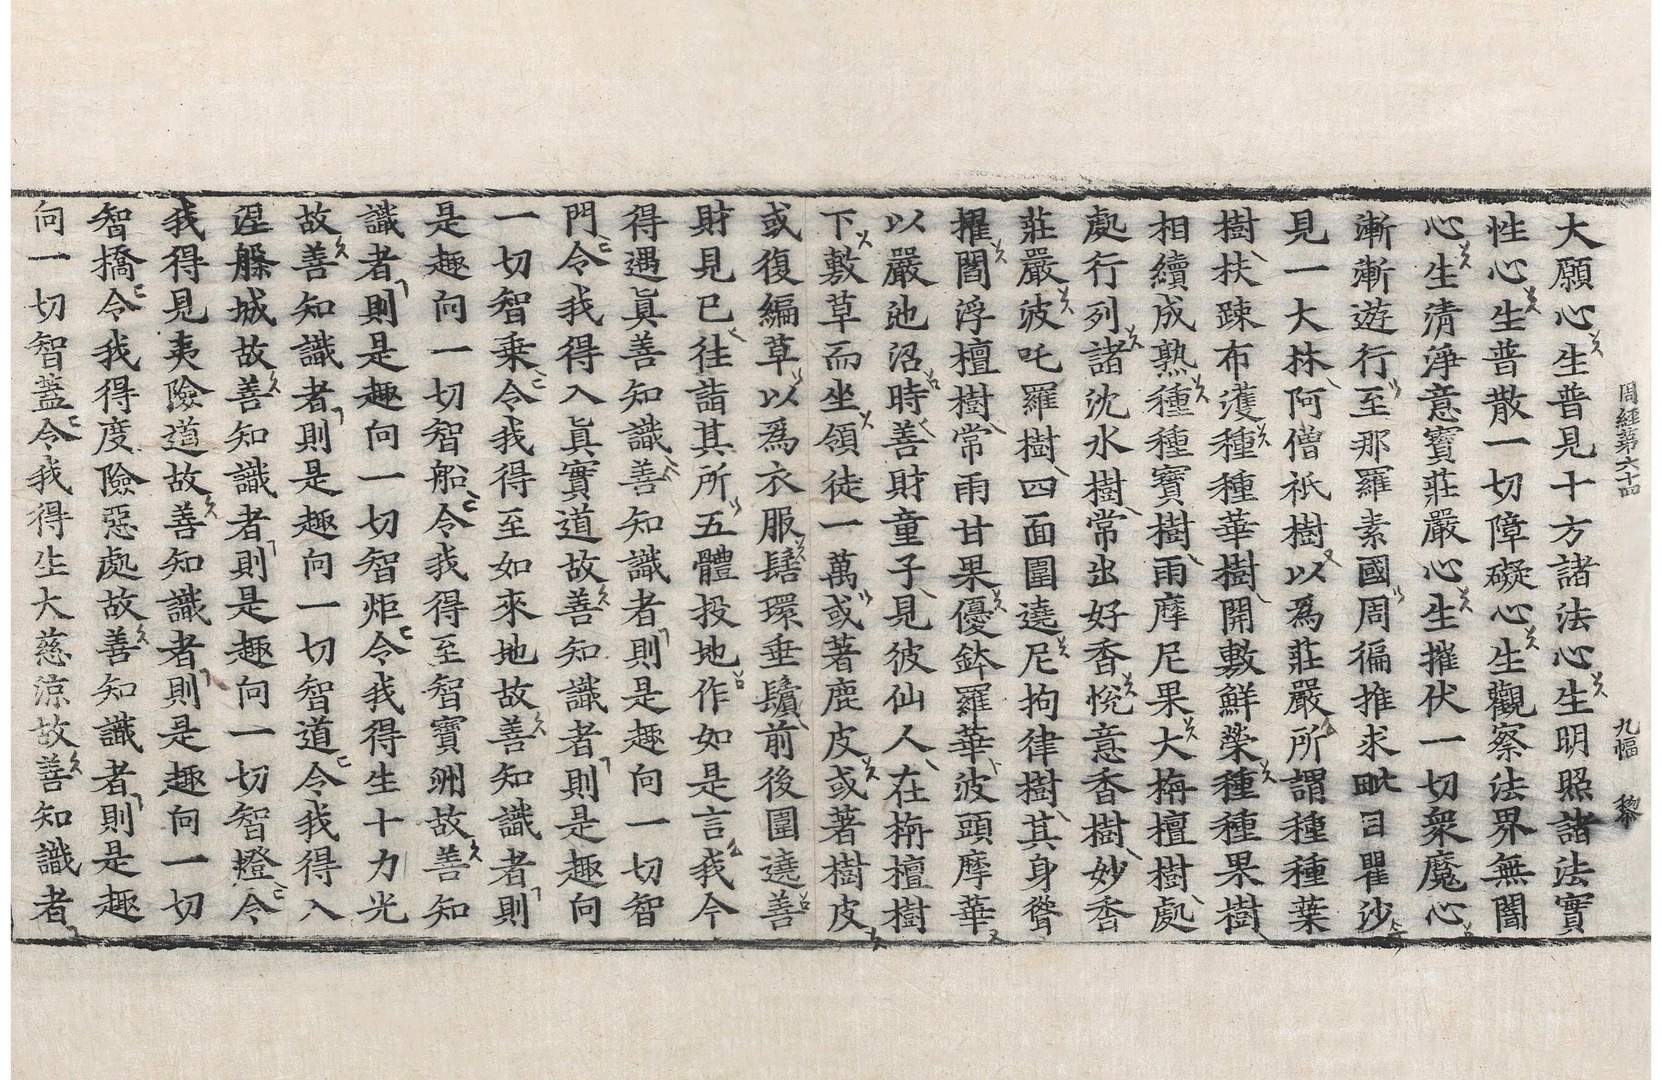 周經第六十四 九幅 黎
大願心生普見十方諸法心生明照諸法寶
性心生普散一切障礙心生觀察法界無闇
心生清淨意寶莊嚴心生摧伏一切衆魔心
漸漸遊行至那羅素國周徧推求毗目瞿沙
見一大林阿僧祇樹以爲莊嚴所謂種種葉
樹扶踈布濩種種華樹開敷鮮榮種種果樹
相續成熟種種寶樹雨摩尼果大栴檀樹處
處行列諸沈水樹常出好香悅意香樹妙香
莊嚴波吒羅樹四面圍遶尼拘律樹其身聳
擢閻浮檀樹常雨甘果優鉢羅華波頭摩華
以嚴池沼時善財童子見彼仙人在栴檀樹
下敷草而坐領徒一萬或著鹿皮或著樹皮
或復編草以爲衣服髻環垂鬢前後圍遶善
財見已往詣其所五體投地作如是言我今
得遇眞善知識善知識者則是趣向一切智
門令我得入眞實道故善知識者則是趣向
一切智乘令我得至如來地故善知識者則
是趣向一切智船令我得至智寶洲故善知
識者則是趣向一切智炬令我得生十力光
故善知識者則是趣向一切智道令我得入
涅槃城故善知識者則是趣向一切智燈令
我得見夷險道故善知識者則是趣向一切
智橋令我得度險惡處故善知識者則是趣
向一切智蓋令我得生大慈涼故善知識者